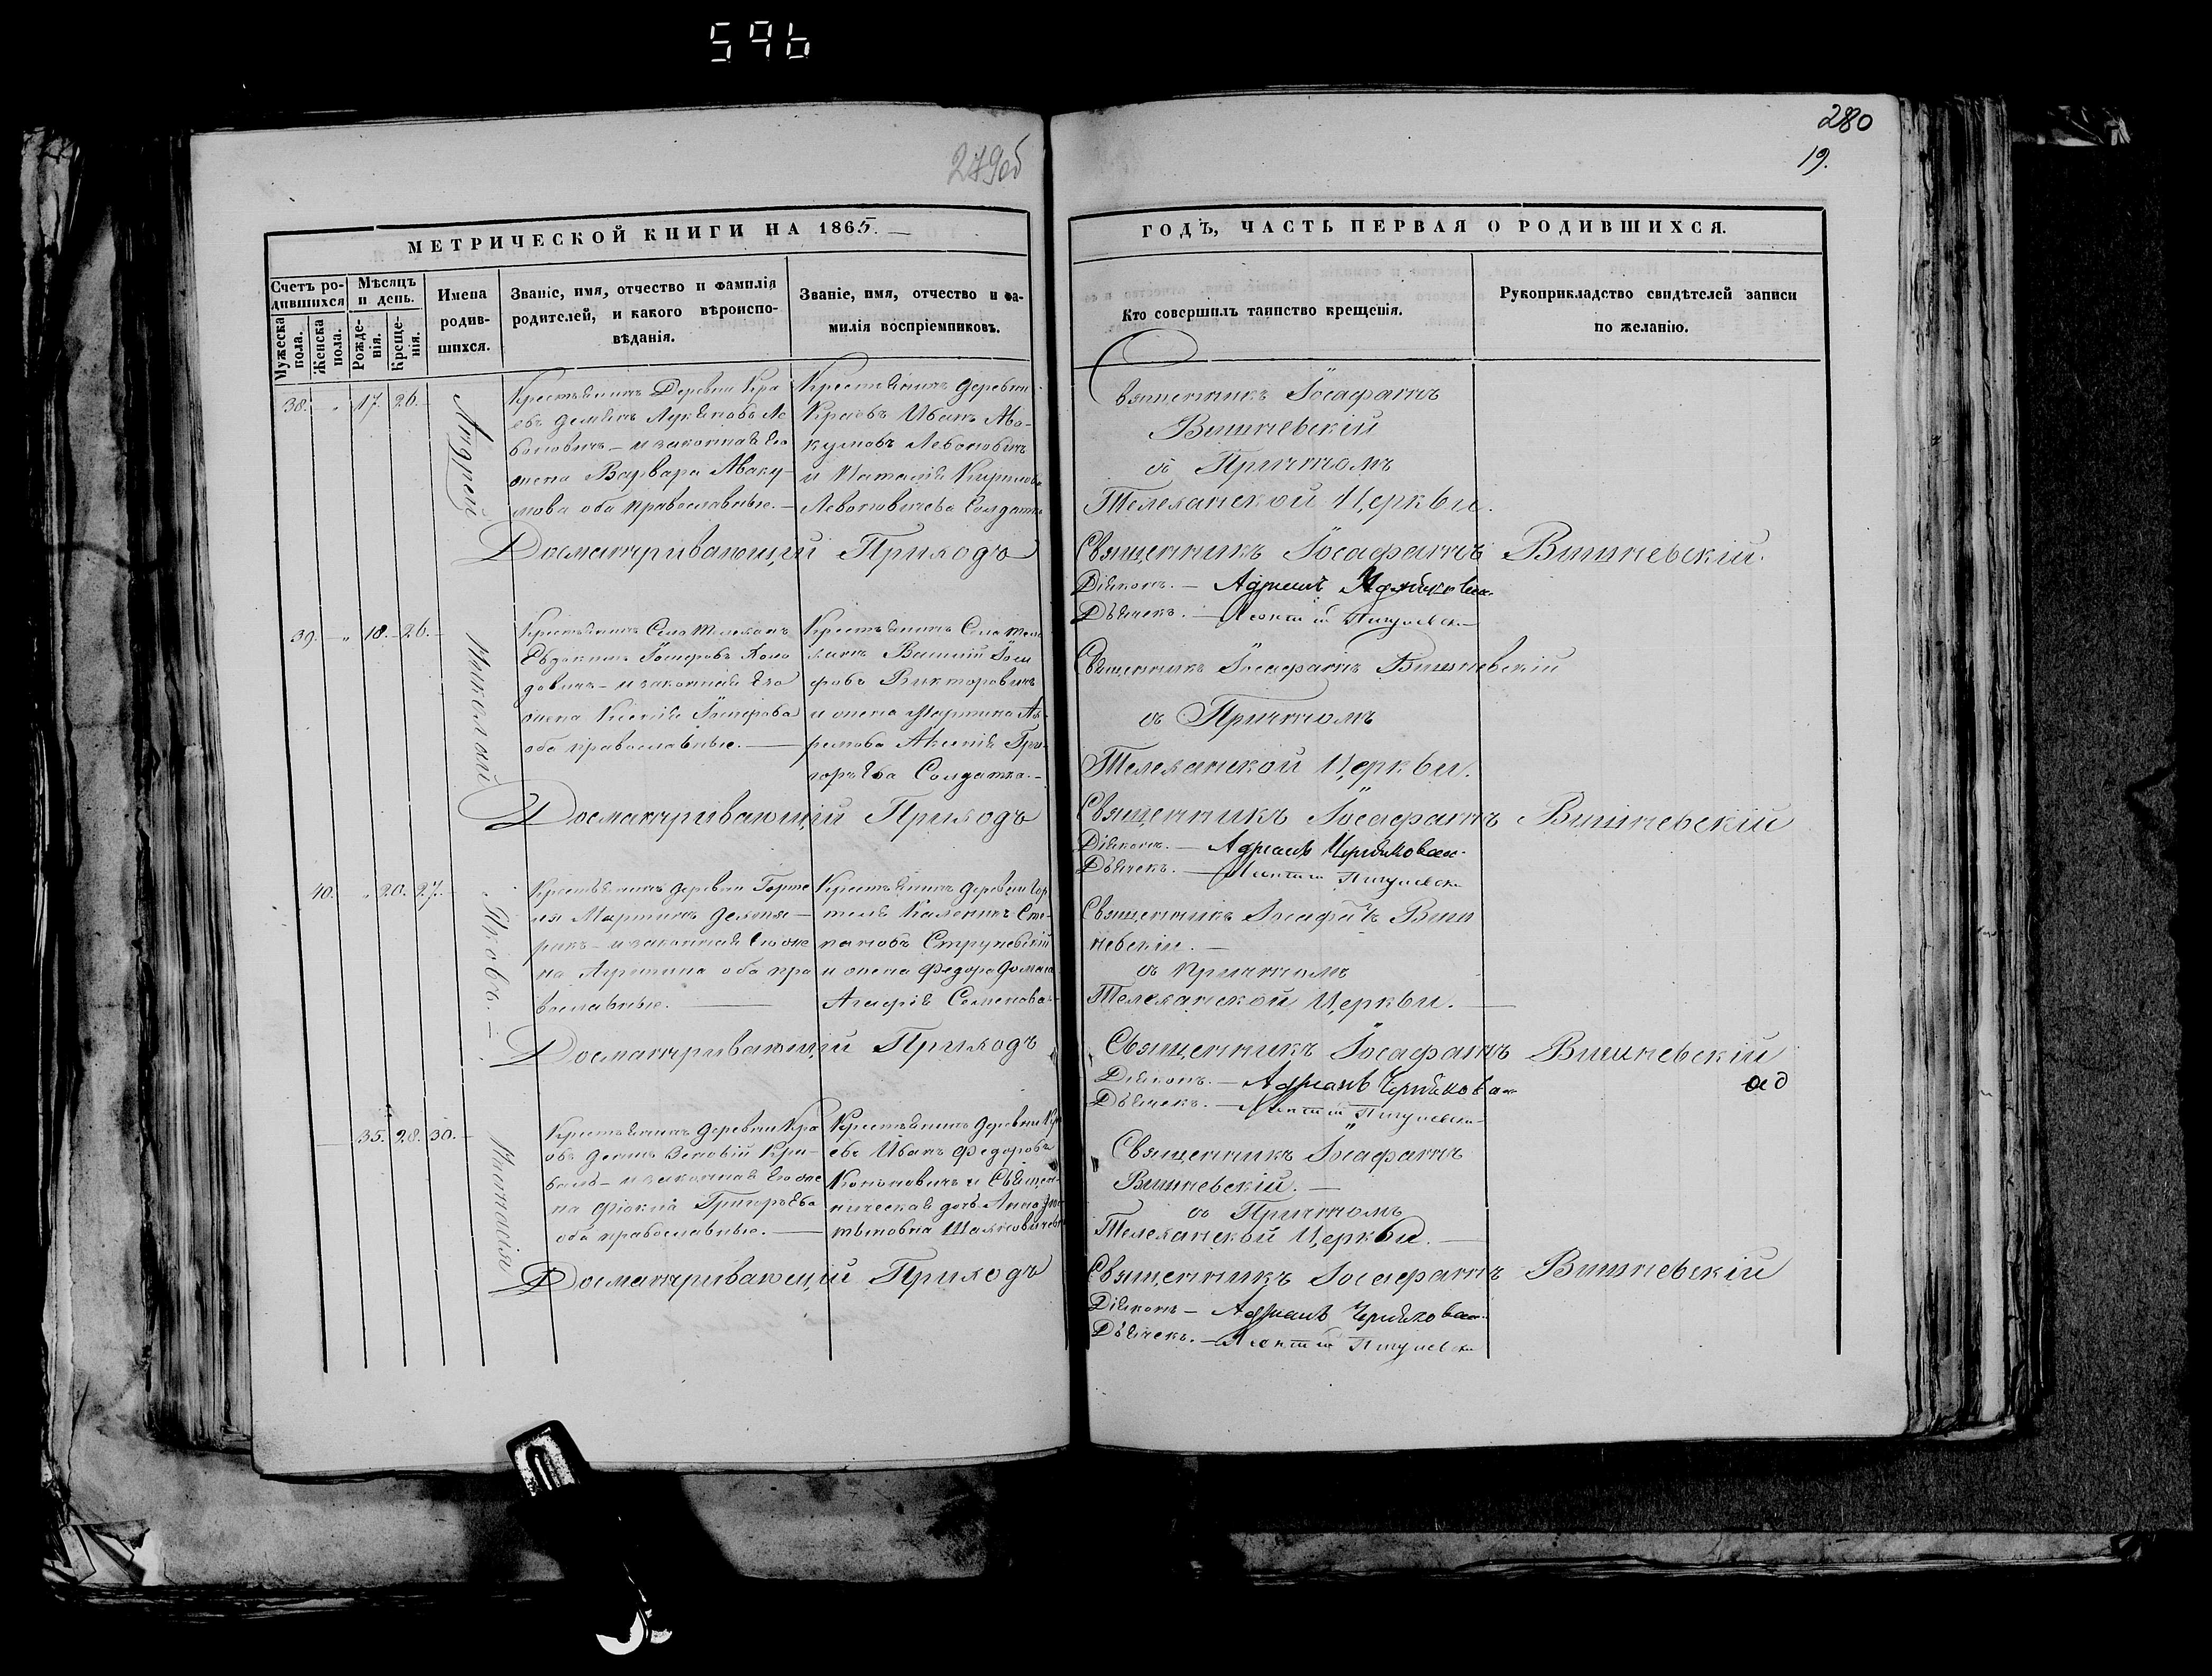 596
279об
280
19.
МЕТРИЧЕСКОЙ КНИГИ НА 1865.
ГОДЪ, ЧАСТЬ ПЕРВАЯ О РОДИВШИХСЯ.
Счетъ ро-
дившихся
Мужеска
пола.
Женска
пола.
Мѣсяцъ
и день.
Рожде-
нія.
Креще-
нія.
Имена
родив-
шихся.
Званіе, имя, отчество и фамилія
родителей, и какого вѣроиспо-
вѣданія.
Званіе, имя, отчество и фа-
милія воспріемниковъ.
Кто совершилъ таинство крещенія.
Рукоприкладство свидѣтелей записи
по желанію.
38. " 17. 26.
Андрей
Крестьянинъ Деревни Кра
евъ Демьянъ Лукьяновъ Ле
воновичъ – и законная его
жена Варвара Аваку-
мова оба православные. –
Крестьянинъ деревни
Краевъ Иванъ Ава-
кумовъ Левоновичъ
и Наталія Кирилова
Левоновичева Солдатка
Священникъ Іосафатъ
Вишневскій
съ Причтомъ
Телеханской Церкви.
Досматривающій Приходъ Священникъ Іосафатъ Вишневскій.
Діяконъ. – Адріанъ
Дьячекъ. –
39. " 18. 26.
Николай
Крестьянинъ Села Телеханъ
Евдокимъ Іосифовъ Коло
довичъ – и законная его
жена Ксенія Іосифова
оба православные. –
Крестьянинъ Села Теле
ханъ Василій Іоси
фовъ Викторовичъ
и жена Мартина Ав-
рамова Аксинія Гри-
горьева Солдатка. –
Священникъ Іосафатъ Вишневскій
съ Причтомъ
Телеханской Церкви.
Досматривающій Приходъ Священникъ Іосафатъ Вишневскій
Діяконъ. – Адріанъ
Дьячекъ. –
40. " 20. 27.
Яковъ. –
Крестьянинъ деревни Горте
ля Мартинъ
– и законная его же
на Агрипина оба пра
вославные. –
Крестьянинъ деревни Гор
теля Каленикъ Сте-
пановъ Струневскій
и жена Федора
Агафія Семенова. –
Священникъ Іосафатъ Виш
невскій. –
съ причтомъ
Телеханской Церкви. –
Досматривающій Приходъ Священникъ Іосафатъ Вишневскій
Діяконъ. – Адріанъ
Дьячекъ. –
35. 28. 30.
Анастасія
Крестьянинъ деревни Кра
евъ
– и законная его же
на Фіокла Григорьева
оба православные. –
Крестьянинъ деревни Кра
евъ Иванъ Федоровъ
Кононовичъ и Священ-
ническая дочь Анна
Священникъ Іосафатъ
Вишневскій. –
съ Причтомъ
Телеханской Церкви. –
Досматривающій Приходъ Священникъ Іосафатъ Вишневскій
Діяконъ – Адріанъ
Дьячекъ. –